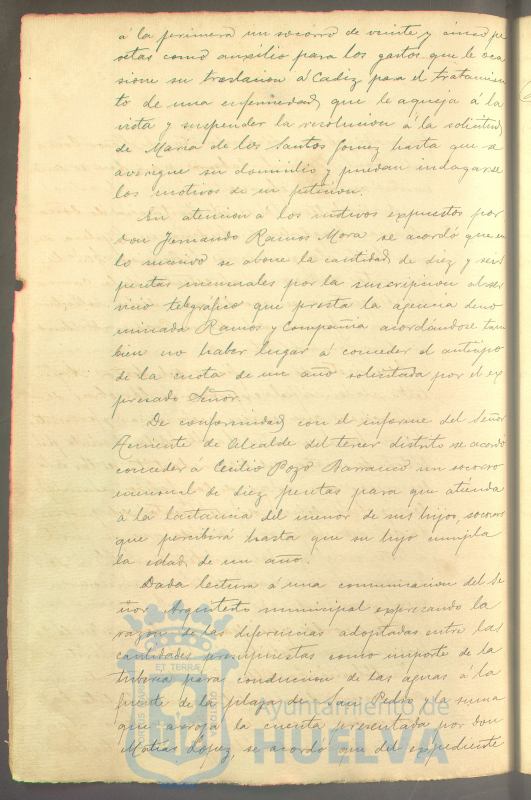 á la primera un socorro de veinte y cinco pe
setas como auxilio para los gastos que le oca
sione su traslacion á Cadiz para el tratamien
to de una enfermedad que le aqueja á la
vista y suspender la resolucion á la solicitud
de Maria de los Santos Gomez hasta que se
averigue su domicilio y puedan indagarse
los motivos de su peticion.
En atencion á los motivos expuestos por
Don Fernando Ramos Mora se acordó que en
lo sucesivo se abone la cantidad de diez y seis
pesetas mensuales por la suscripcion al ser
vicio telegráfico que presta la agencia deno
minada Ramos y Compañia acordándose tam
bien no haber lugar á conceder el anticipo
de la cuota de un año solicitada por el ex
presado Señor.
De conformidad con el informe del Señor
Teniente de Alcalde del tercer distrito se acordó
conceder á Cecilio Pozo Barranco un socorro
mensual de diez pesetas para que atienda
á la lactancia del menor de sus hijos, socorro
que percibirá hasta que su hijo cumpla
la edad de un año.
Dada lectura á una comunicacion del Se
ñor Arquitecto municipal expresando la
razon de las diferencias adoptadas entre las
cantidades presupuestas como importe de la
tuberia para conduccion de las aguas á la
fuente de la plaza de San Pedro y la suma
que arroja la cuenta presentada por Don
Matias López, se acordó que del expediente
ET TERRA
Ayuntamiento de
HUELVA